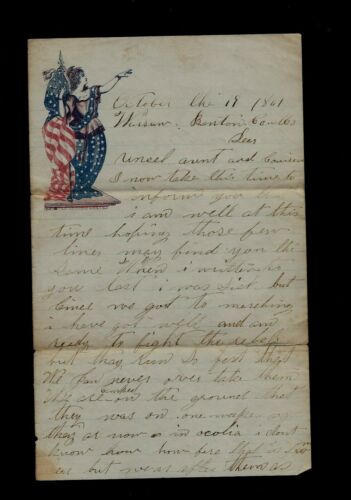 October the 19 1861
Warsaw Benton Co Mo
Dear
Uncel aunt and Cousins
I now take this time to
inform you that
i am well at this
time hoping those few
lines may find you the
same When i written to
you last i was sick but
since we got to marching
i have got well and am
ready to fight the rebels
but they run so fast that
We can never over take them
We are camped on the ground that
they was on one week ago
they ar now in oceolia i dont
know how how fare that is from
us but we ar after them as